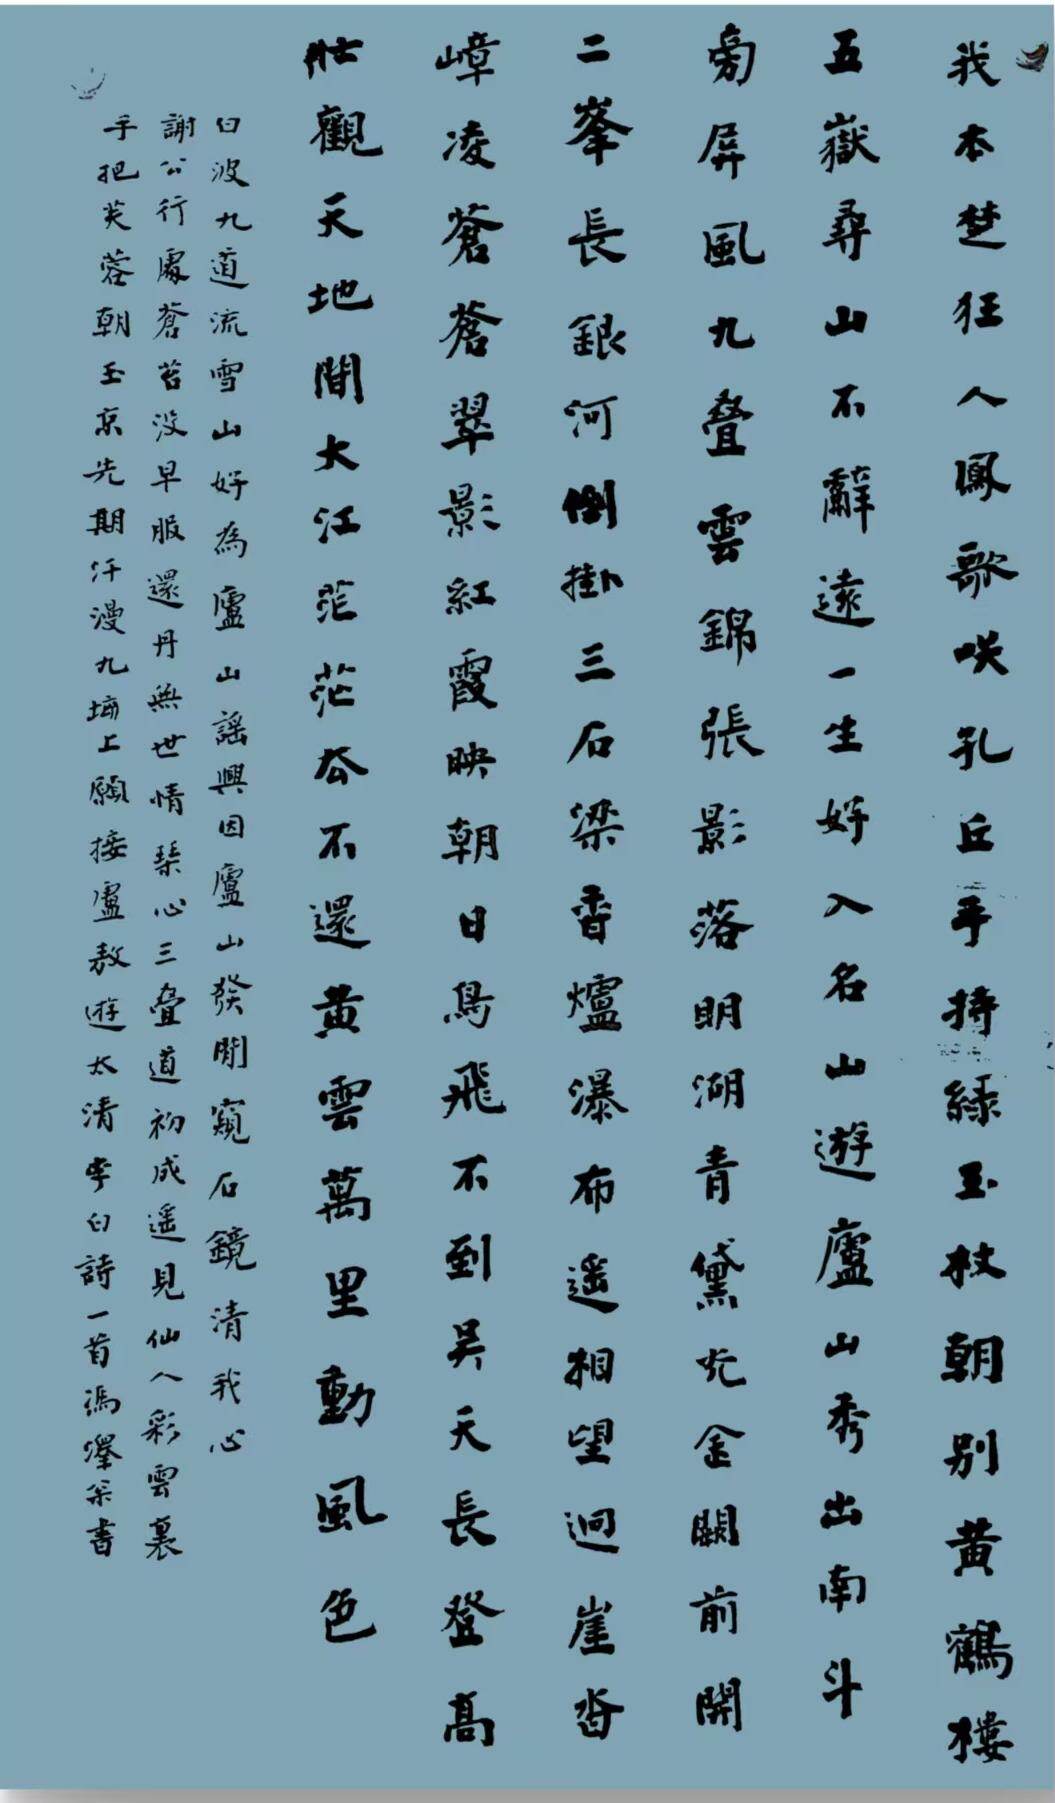 我本楚狂人鳳歌咲孔丘手持緑玉杖朝别黄鶴樓
五嶽尋山不辭遠一生好入名山遊廬山秀出南斗
旁屏風九叠雲錦張影落明湖青黛光金闕前開
二峯長銀河倒掛三石梁香爐瀑布遥相望迥崖沓
嶂凌蒼蒼翠影紅霞映朝日鳥飛不到吴天長登髙
壯觀天地間大江茫茫去不還黄雲萬里動風色
白波九道流雪山好為廬山謡興因廬山發閒窺石鏡清我心
謝公行處蒼苔没早服還丹無世情琹心三叠道初成遥見仙人彩雲裏
手把芙蓉朝玉京先期汗漫九垓上願接盧敖遊太清李白詩一首馮書